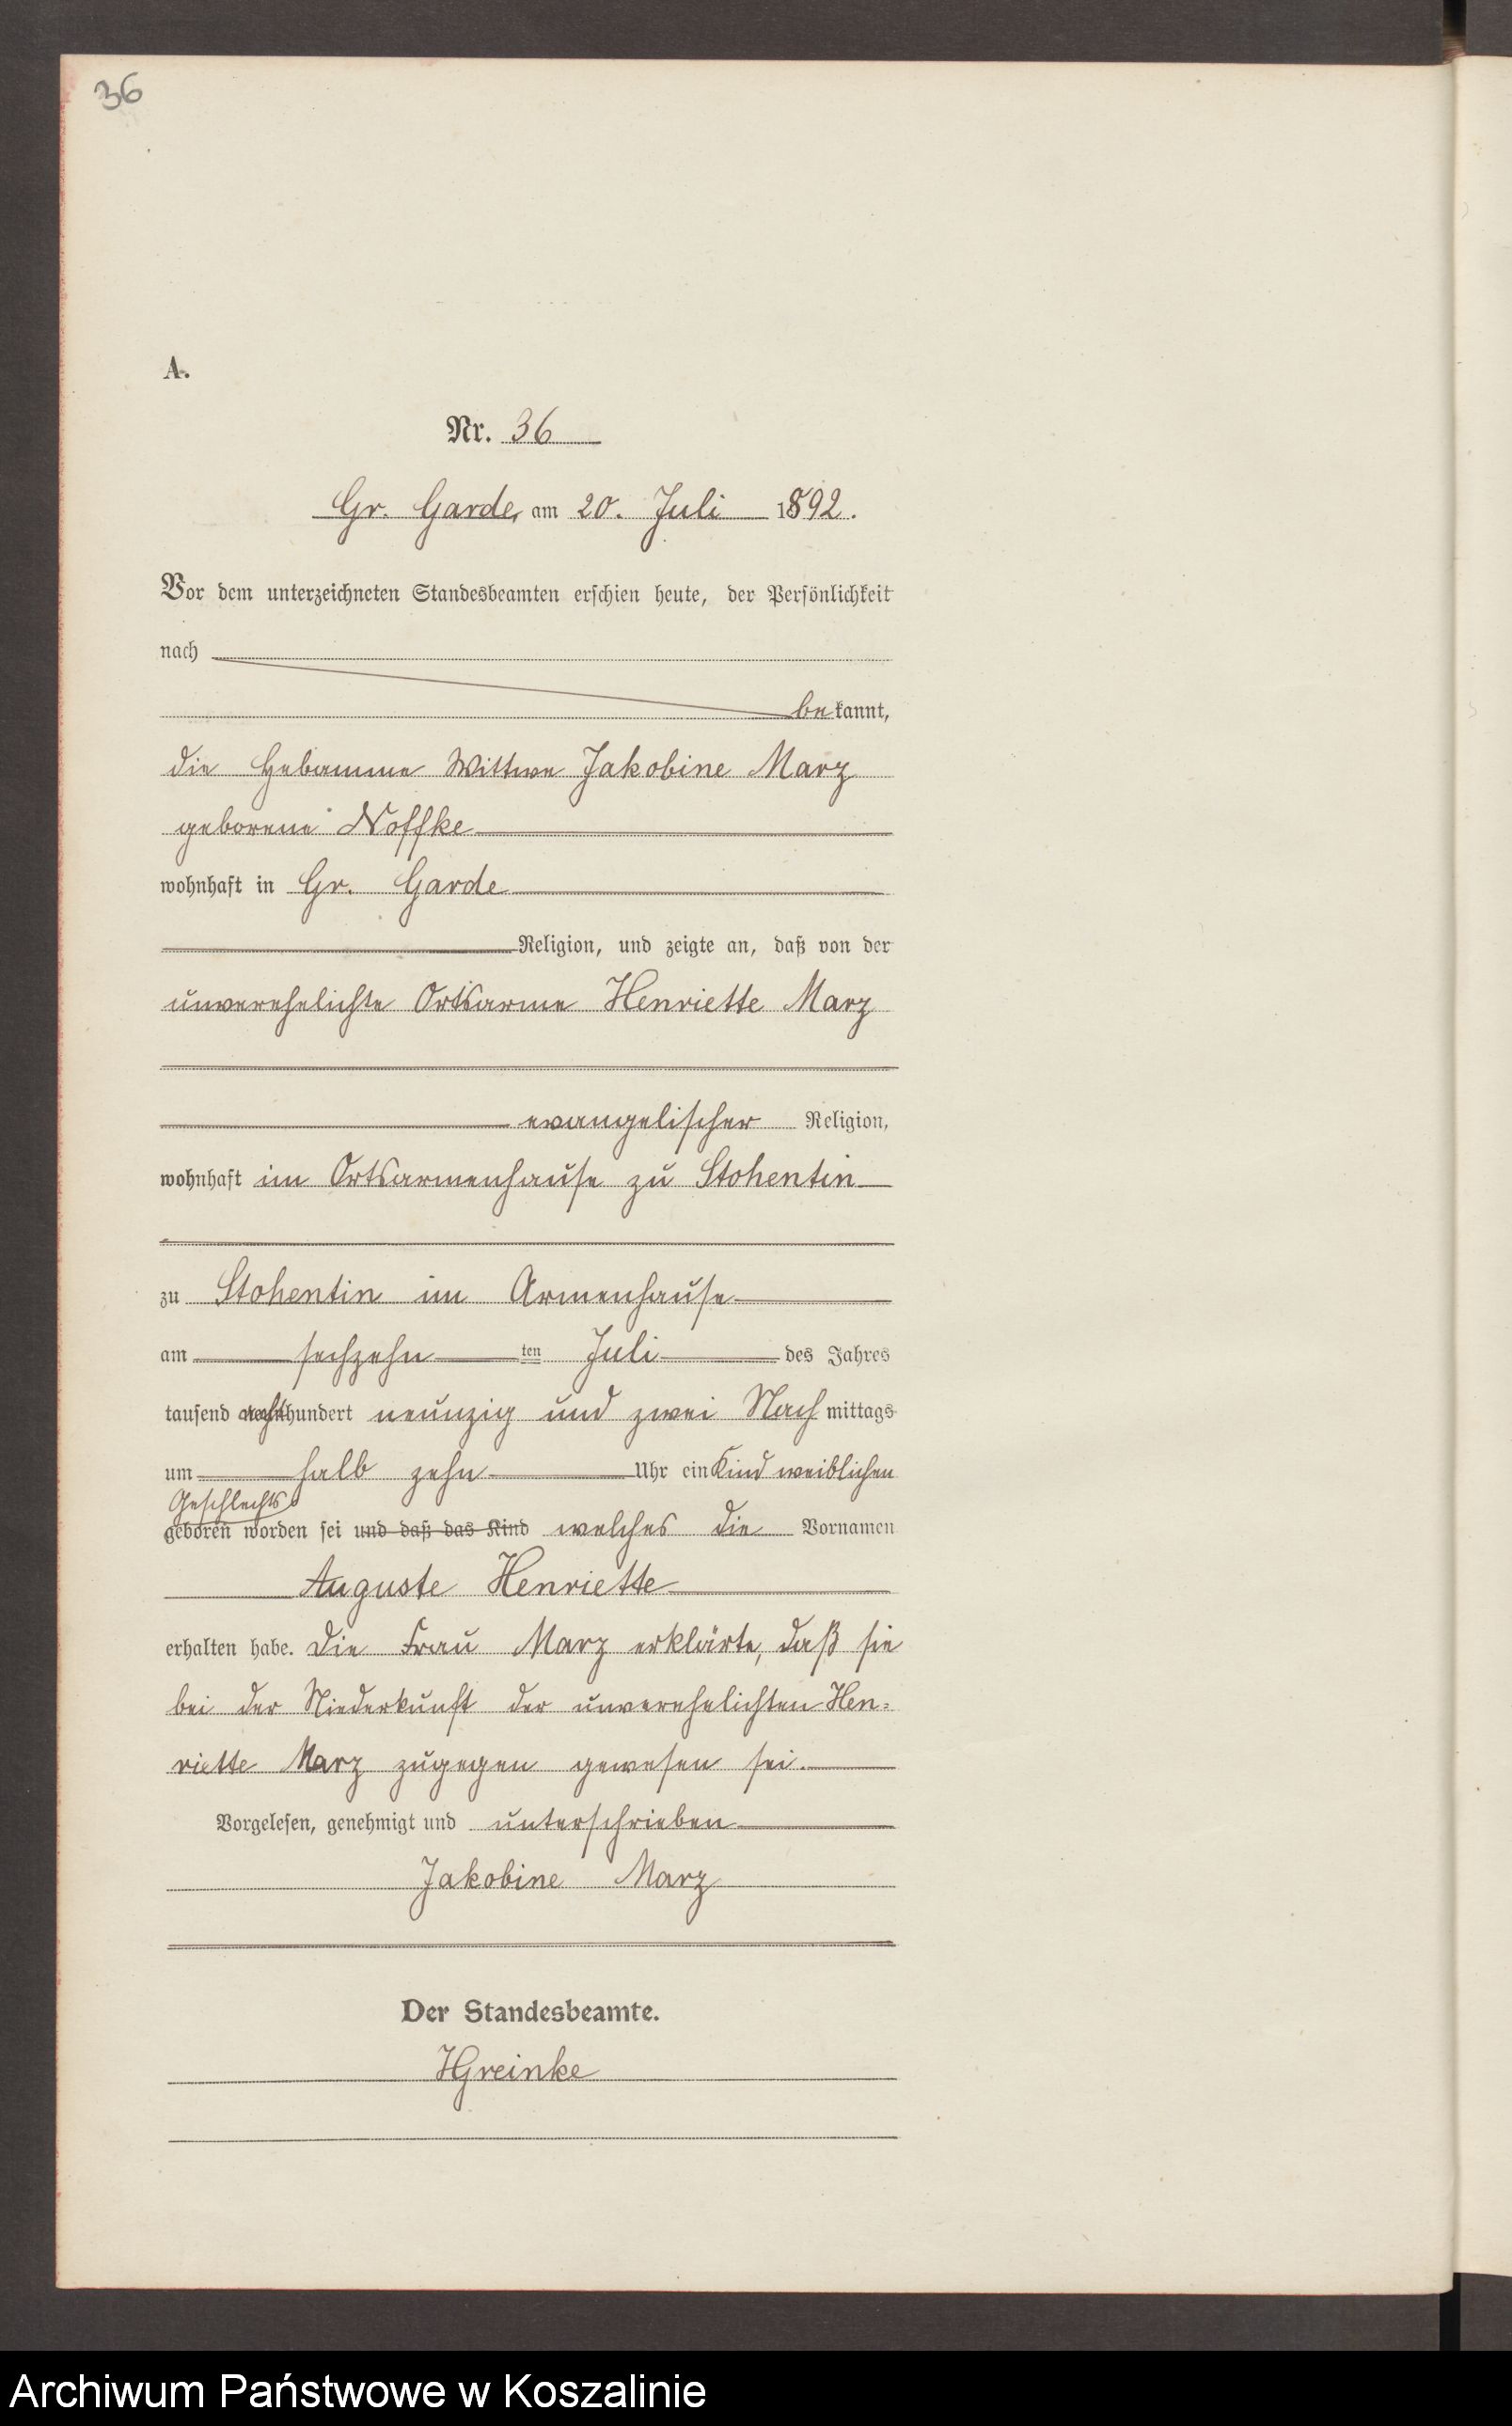 36
A.
Nr. 36
Gr. Garde, am 20. Juli 1892.
Vor dem unterzeichneten Standesbeamten erschien heute, der Persönlichkeit
nach
bekannt,
die Hebamme Wittwe Jakobine Marz
geborene Noffke
wohnhaft in Gr. Garde
Religion, und zeigte an, daß von der
unverehelichte Ortsarme Henriette Marz
evangelischer Religion,
wohnhaft im Ortsarmenhause zu Stohentin
zu Stohentin im Armenhause
am sechzehn ten Juli des Jahres
tausend achthundert neunzig und zwei Nachmittags
um halb zehn Uhr ein Kind weiblichen
Geschlechts
geboren worden sei und daß das Kind welches die Vornamen
Auguste Henriette
erhalten habe. Die Frau Marz erklärte, daß sie
bei der Niederkunft der unverehelichten Hen=
riette Marz zugegen gewesen sei.
Vorgelesen, genehmigt und unterschrieben
Jakobine Marz
Der Standesbeamte.
HGreinke
Archiwum Państwowe w Koszalinie